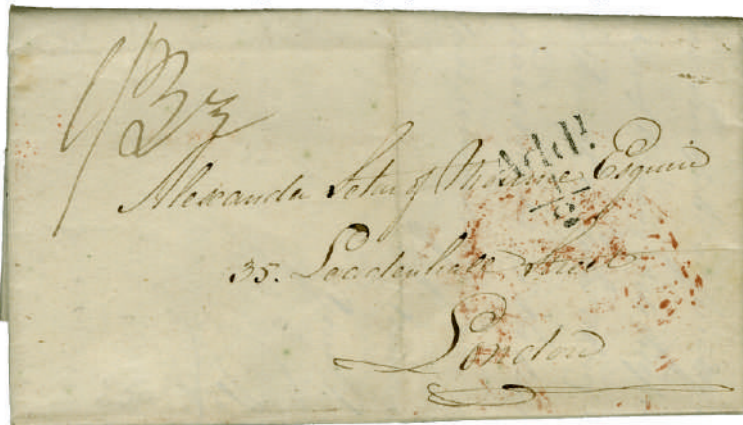 1/3½
Addl.
½
Alexander of Mounie Esquire
35. Leadenhall Street
London